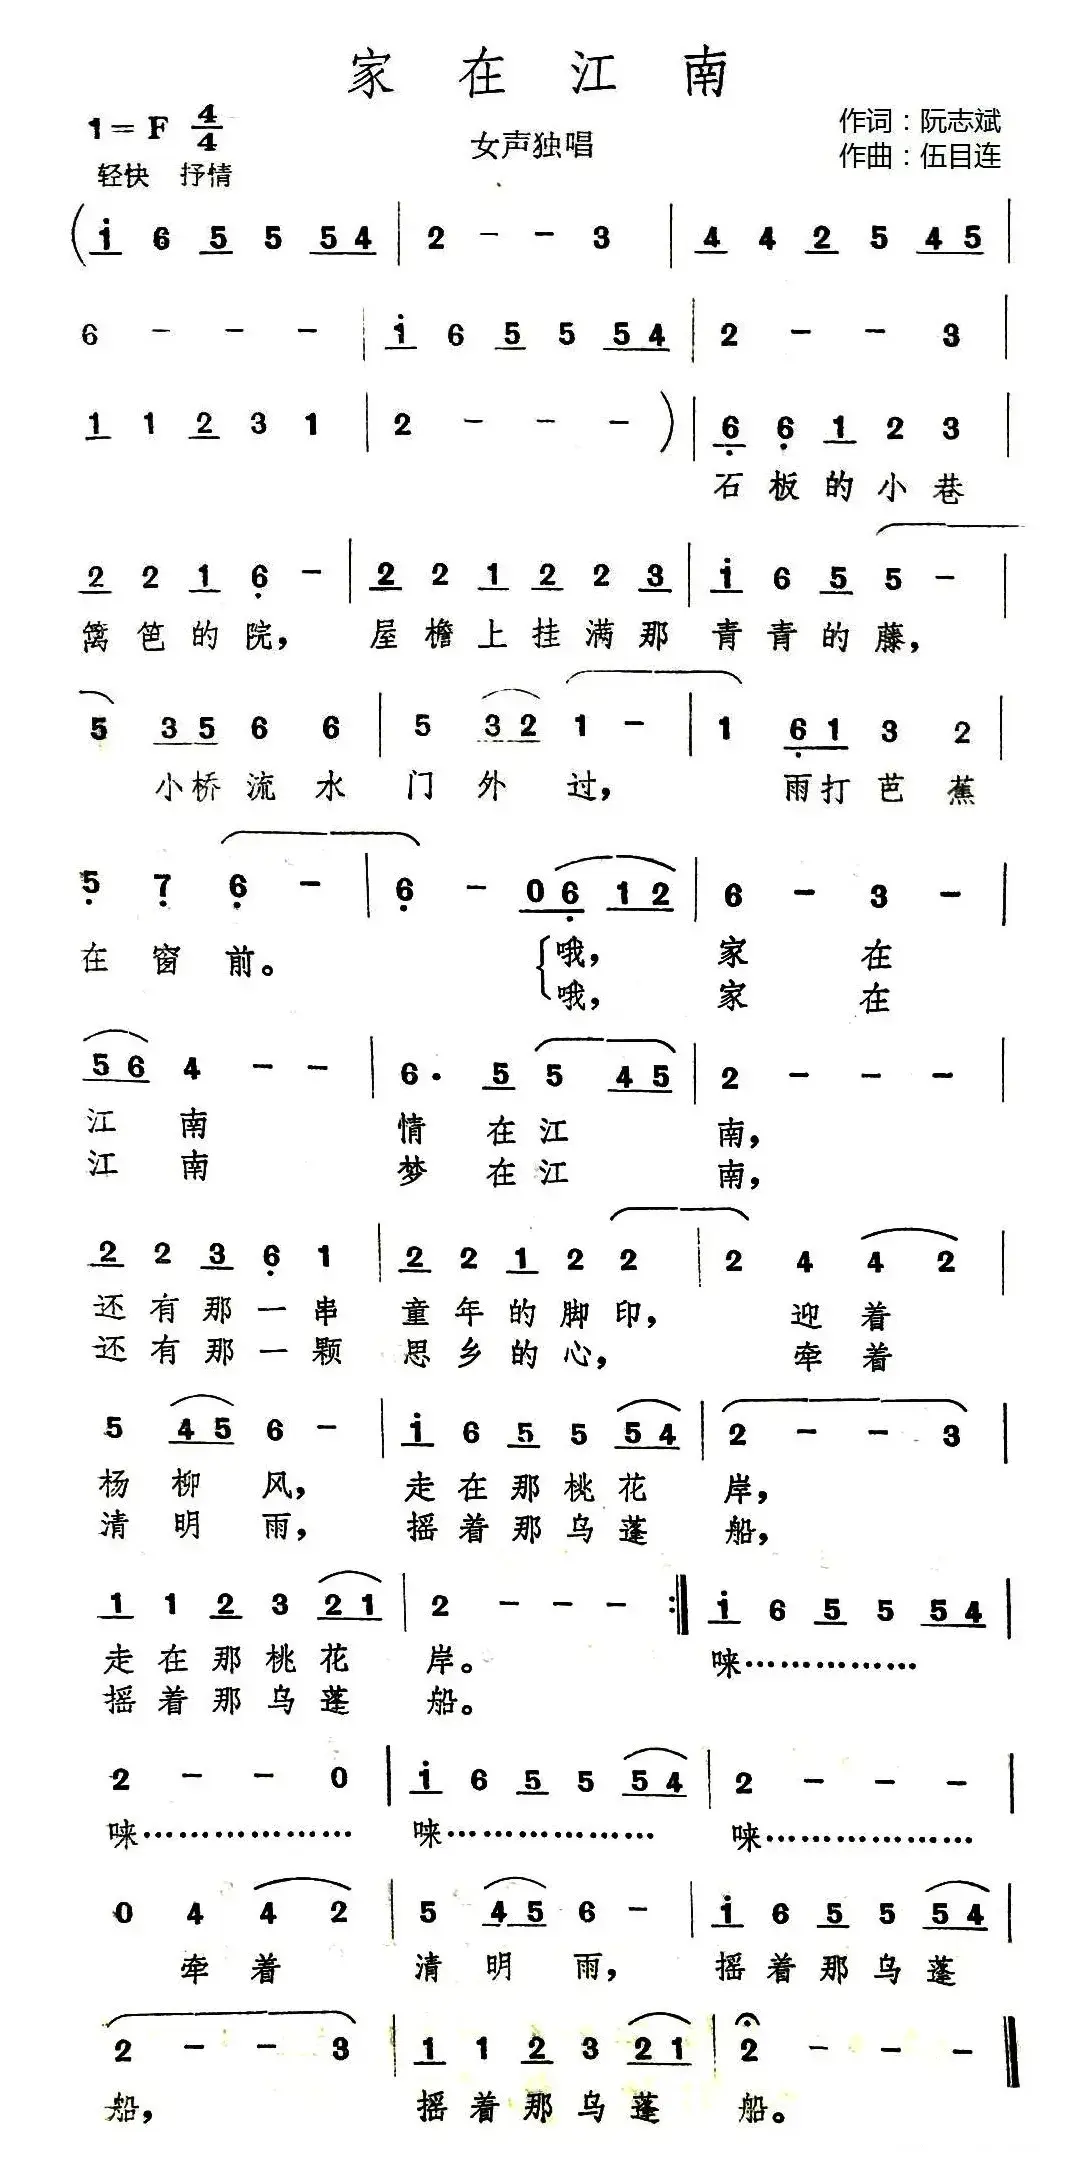 家在江南
1=F 4/4
女声独唱
作词：阮志斌
作曲：伍目连
轻快 抒情
( i 6 5 5 5 4 | 2 - - 3 | 4 4 2 5 4 5 |
6 - - - | i 6 5 5 5 4 | 2 - - 3 |
1 1 2 3 1 | 2 - - - ) | 6 6 1 2 3 |
石板的小巷
2 2 1 6 - | 2 2 1 2 2 3 | i 6 5 5 - |
篱笆的院，屋檐上挂满那青青的藤，
5 3 5 6 6 | 5 3 2 1 - | 1 6 1 3 2 |
小桥流水门外过，雨打芭蕉
5 7 6 - | 6 - 0 6 1 2 | 6 - 3 - |
在窗前。哦，家在
哦，家在
5 6 4 - - | 6· 5 5 4 5 | 2 - - - |
江南情在江南，
江南梦在江南，
2 2 3 6 1 | 2 2 1 2 2 | 2 4 4 2 |
还有那一串童年的脚印，迎着
还有那一颗思乡的心，牵着
5 4 5 6 - | i 6 5 5 5 4 | 2 - - 3 |
杨柳风，走在那桃花岸，
清明雨，摇着那乌蓬船，
1 1 2 3 2 1 | 2 - - - :| i 6 5 5 5 4 |
走在那桃花岸。唻……………
摇着那乌蓬船。
2 - - 0 | i 6 5 5 5 4 | 2 - - - |
唻………………唻………………唻………………
0 4 4 2 | 5 4 5 6 - | i 6 5 5 5 4 |
牵着清明雨，摇着那乌蓬
2 - - 3 | 1 1 2 3 2 1 | 2 - - - ‖
船，摇着那乌蓬船。